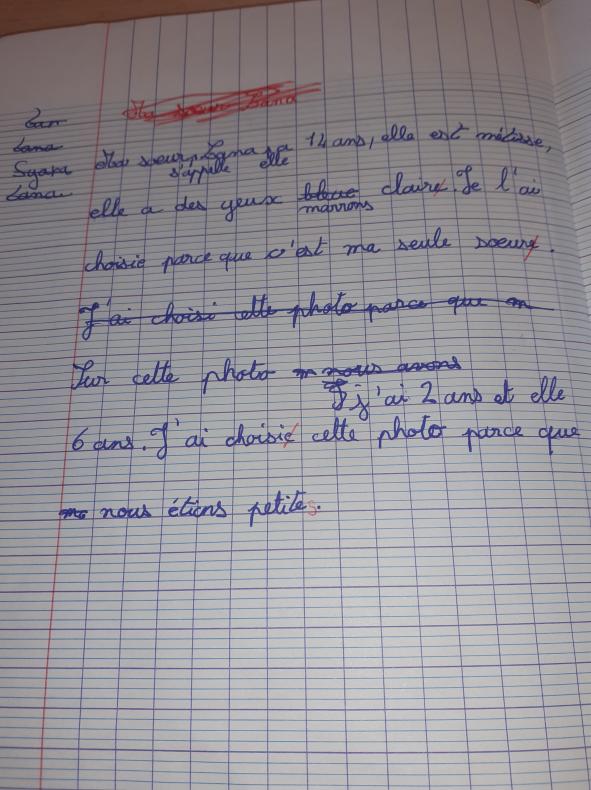 Ma soeur Lana
Lan
Lana
Syana
Lana
Ma soeur, Lyana a 14 ans, elle est métisse,
s'appelle elle
elle a des yeux bleue claire. Je l'ai
marrons
choisie parce que c'est ma seule soeur.
J'ai choisi cette photo parce que m
Sur cette photo m nous avons
J j'ai 2 ans et elle
6 ans. J'ai choisie cette photo parce que
nous étions petites.